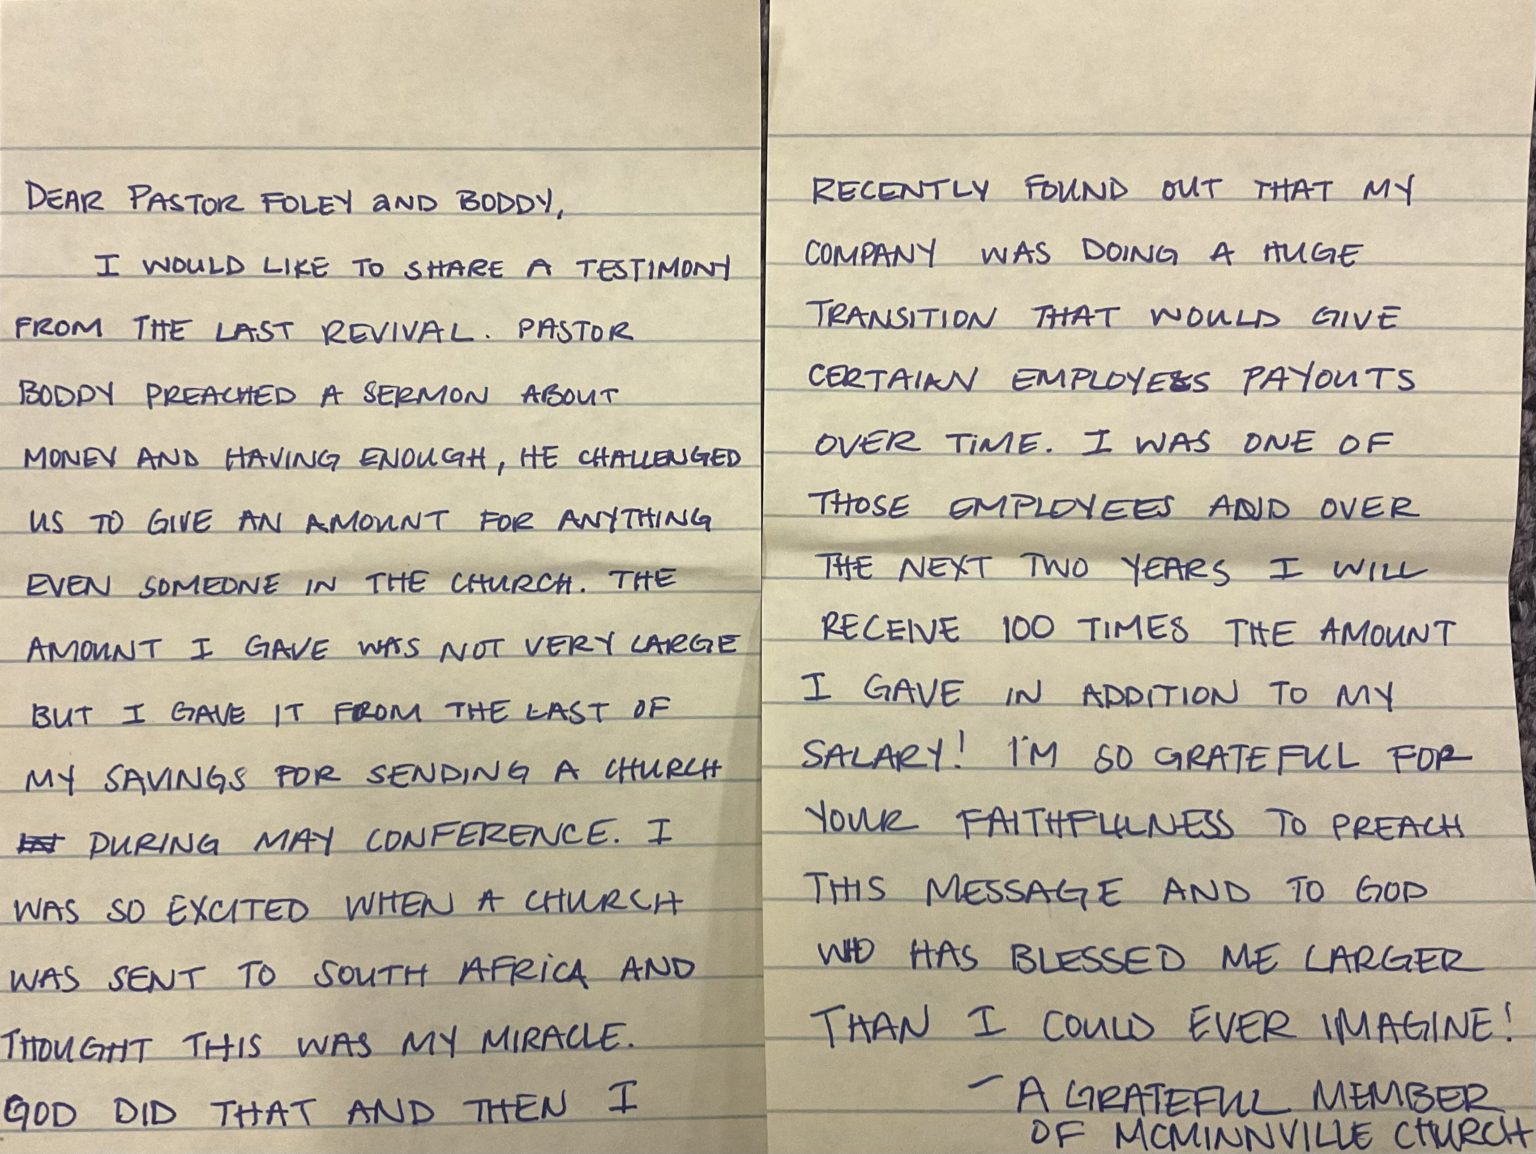 DEAR PASTOR FOLEY AND BODDY,
I WOULD LIKE TO SHARE A TESTIMONY
FROM THE LAST REVIVAL. PASTOR
BODDY PREACHED A SERMON ABOUT
MONEY AND HAVING ENOUGH, HE CHALLENGED
US TO GIVE AN AMOUNT FOR ANYTHING
EVEN SOMEONE IN THE CHURCH. THE
AMOUNT I GAVE WAS NOT VERY LARGE
BUT I GAVE IT FROM THE LAST OF
MY SAVINGS FOR SENDING A CHURCH
DURING MAY CONFERENCE. I
WAS SO EXCITED WHEN A CHURCH
WAS SENT TO SOUTH AFRICA AND
THOUGHT THIS WAS MY MIRACLE.
GOD DID THAT AND THEN I
RECENTLY FOUND OUT THAT MY
COMPANY WAS DOING A HUGE
TRANSITION THAT WOULD GIVE
CERTAIAN EMPLOYEES PAYOUTS
OVER TIME. I WAS ONE OF
THOSE EMPLOYEES AND OVER
THE NEXT TWO YEARS I WILL
RECEIVE 100 TIMES THE AMOUNT
I GAVE IN ADDITION TO MY
SALARY! I'M SO GRATEFUL FOR
YOUR FAITHFULNESS TO PREACH
THIS MESSAGE AND TO GOD
WHO HAS BLESSED ME LARGER
THAN I COULD EVER IMAGINE!
- A GRATEFUL MEMBER
OF MCMINNVILLE CHURCH